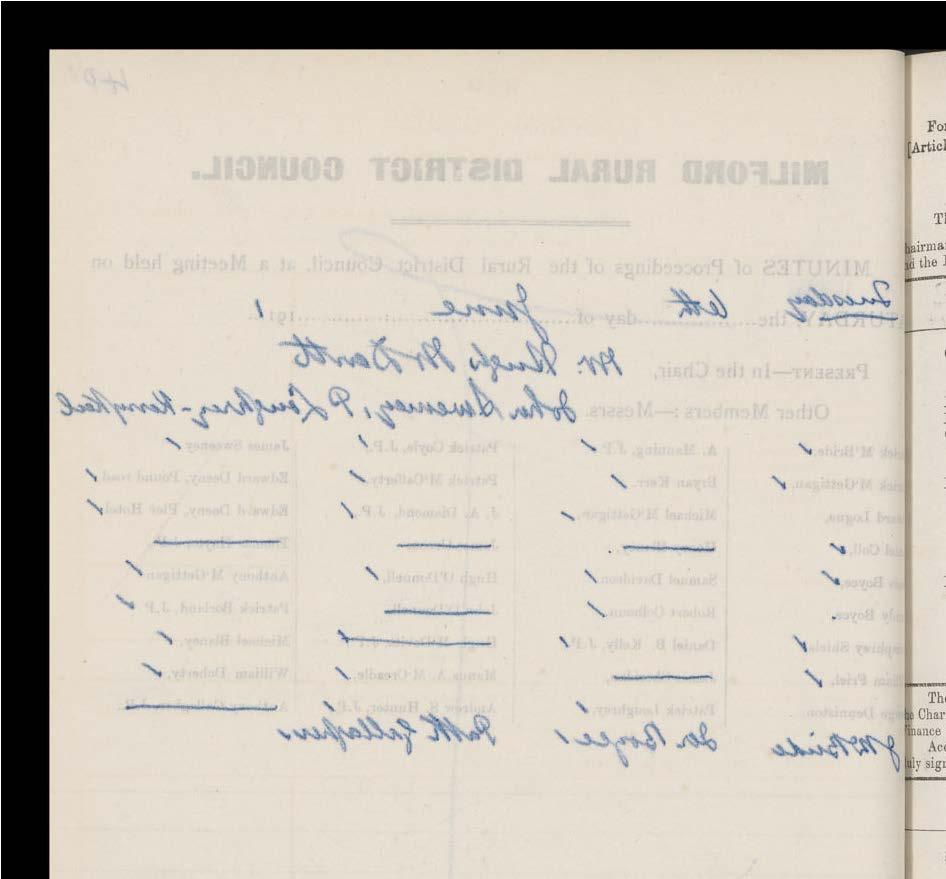 40
MILFORD RURAL DISTRICT COUNCIL.
MINUTES of Proceedings of the Rural District Council, at a Meeting held on
Tuesday
TURDAY, the 6th day of June 1911.
PRESENT—In the Chair, Mr. Hugh
Other Members:—Messrs. John Sweeney, P Loughrey-Kerrykeel
rick M'Bride, A. Manning, J.P. Patrick Coyle, J.P. James Sweeney
rick M'Gettigan, Bryan Kerr. Patrick M'Cafferty. Edward Deeny, Pound road.
ward Logue, Michael M'Gettigan. J. A. Diamond, J.P. Edward Deeny, Pier Hotel
iel Coll, Henry
Boyce, Samuel Davidson Hugh O'Donnell. Anthony M'Gettigan
Boyce. Robert Colhoun. John O'Donnell Patrick Borland, J.P.
mphrey Shiels Daniel B. Kelly, J.P. Hugh M'Devitt, J.P. Michael Blaney.
lliam Friel. James Manus A. M'Creadie. William Doherty.
rge Denniston Patrick Loughrey. Andrew S. Hunter, J.P. Anthony Gallagher, J.P.
J McBride Boyce Gallagher
For
[Artic
Th
hairma
nd the
The
he Char
Finance
Acc
uly sign